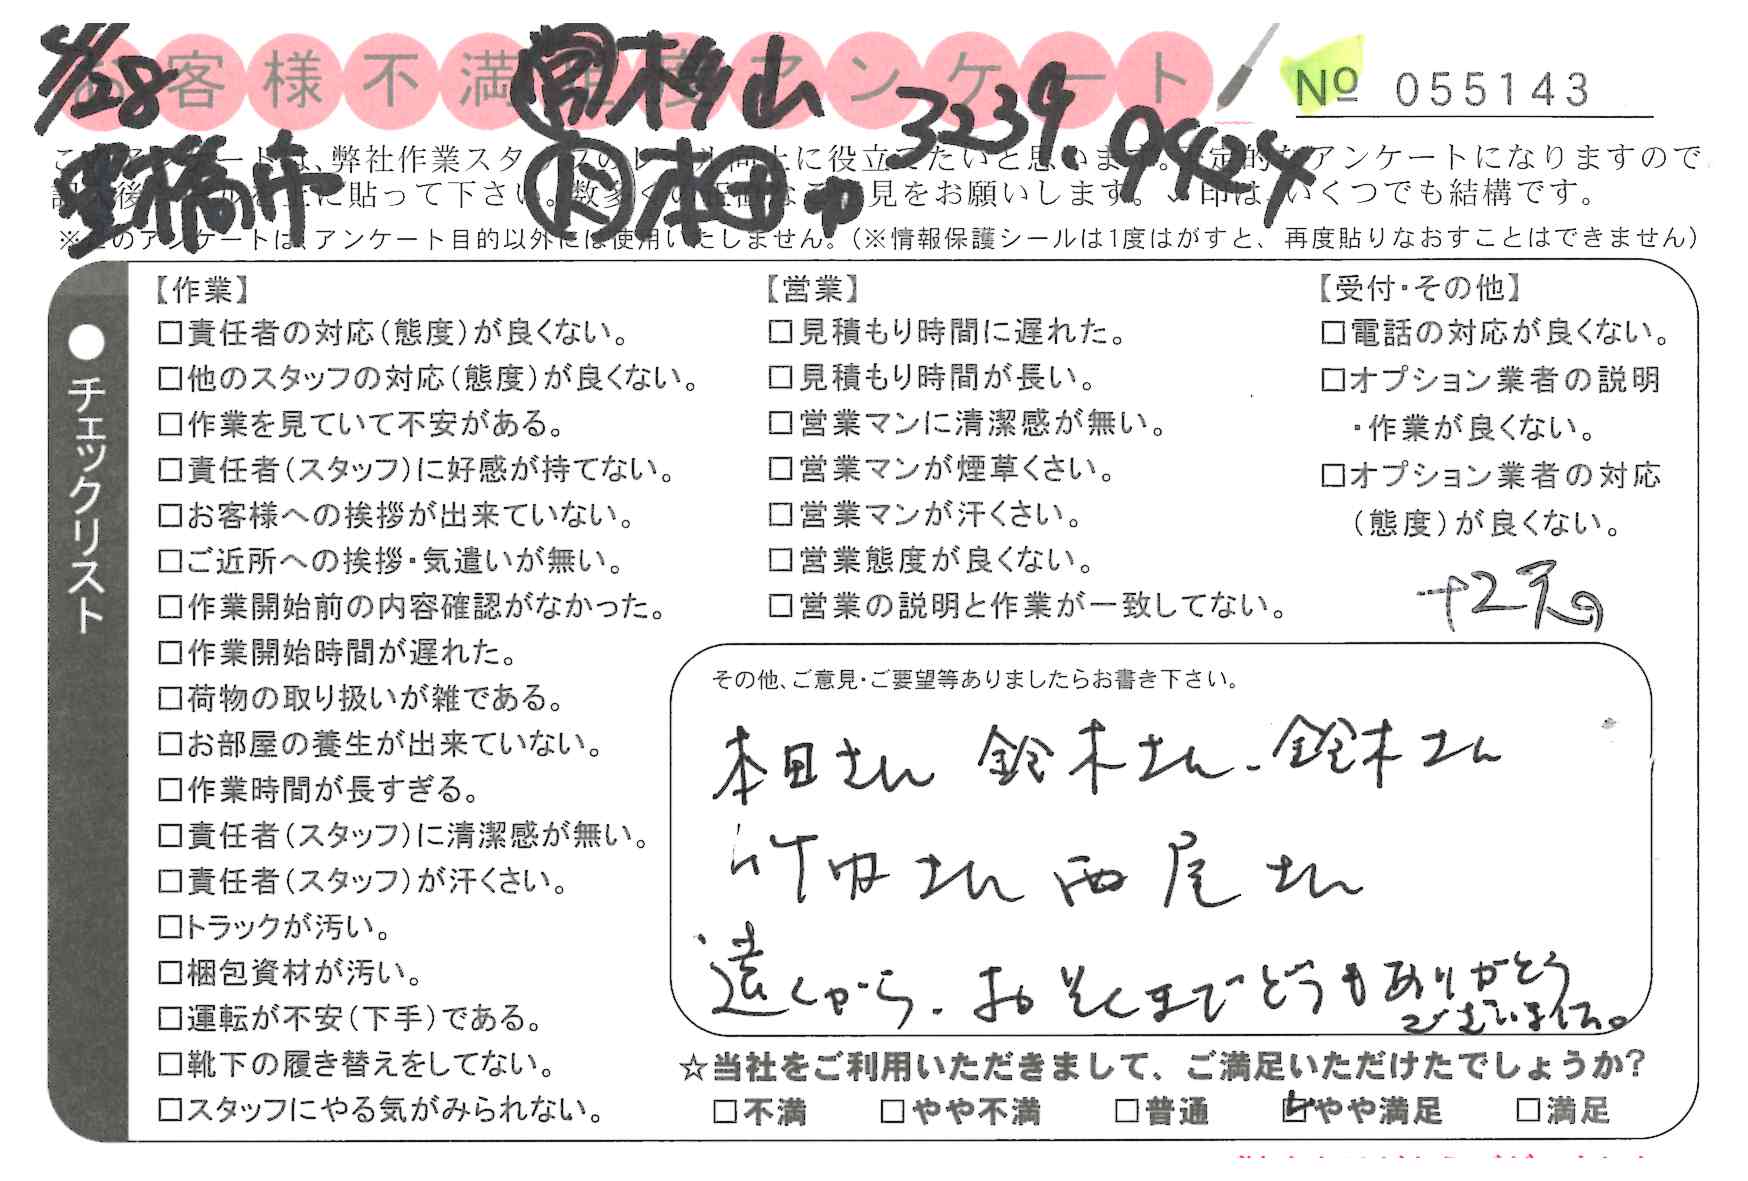 お客様不満足度アンケート
No 055143
5/28
営 杉山
3239.9424
豊橋市
本田
このアンケートは、弊社作業スタッフのレベル向上に役立てたいと思います。否定的なアンケートになりますので
記入後シールを上に貼って下さい。数多くの正直なご意見をお願いします。✓印は、いくつでも結構です。
※このアンケートは、アンケート目的以外には使用いたしません。(※情報保護シールは1度はがすと、再度貼りなおすことはできません)
●チェックリスト
【作業】
□責任者の対応(態度)が良くない。
□他のスタッフの対応(態度)が良くない。
□作業を見ていて不安がある。
□責任者(スタッフ)に好感が持てない。
□お客様への挨拶が出来ていない。
□ご近所への挨拶・気遣いが無い。
□作業開始前の内容確認がなかった。
□作業開始時間が遅れた。
□荷物の取り扱いが雑である。
□お部屋の養生が出来ていない。
□作業時間が長すぎる。
□責任者(スタッフ)に清潔感が無い。
□責任者(スタッフ)が汗くさい。
□トラックが汚い。
□梱包資材が汚い。
□運転が不安(下手)である。
□靴下の履き替えをしてない。
□スタッフにやる気がみられない。
【営業】
□見積もり時間に遅れた。
□見積もり時間が長い。
□営業マンに清潔感が無い。
□営業マンが煙草くさい。
□営業マンが汗くさい。
□営業態度が良くない。
□営業の説明と作業が一致してない。
【受付・その他】
□電話の対応が良くない。
□オプション業者の説明
・作業が良くない。
□オプション業者の対応
(態度)が良くない。
その他、ご意見・ご要望等ありましたらお書き下さい。
本田さん 鈴木さん・鈴木さん
竹内さん 西尾さん
遠くから、おそくまでどうもありがとう
ございました。
☆当社をご利用いただきまして、ご満足いただけたでしょうか?
□不満 □やや不満 □普通 ☑やや満足 □満足